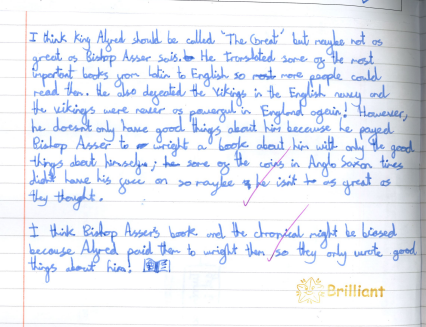 I think king Alfred should be called 'The Great' but maybe not as
great as Bishop Asser sais. He translated some of the most
important books from latin to English so more people could
read them. He also defeated the vikings in the English navey and
the vikings were never as powerful in England again! However,
he doesn't only have good things about him because he payed
Bishop Asser to wright a book about him with only the good
things about himself; some of the coins in Anglo Saxon times
didn't have his face on so maybe he isn't as great as
they thought.
I think Bishop Assers book and the chronical might be biased
because Alfred paid them to wright them so they only wrote good
things about him!
Brilliant